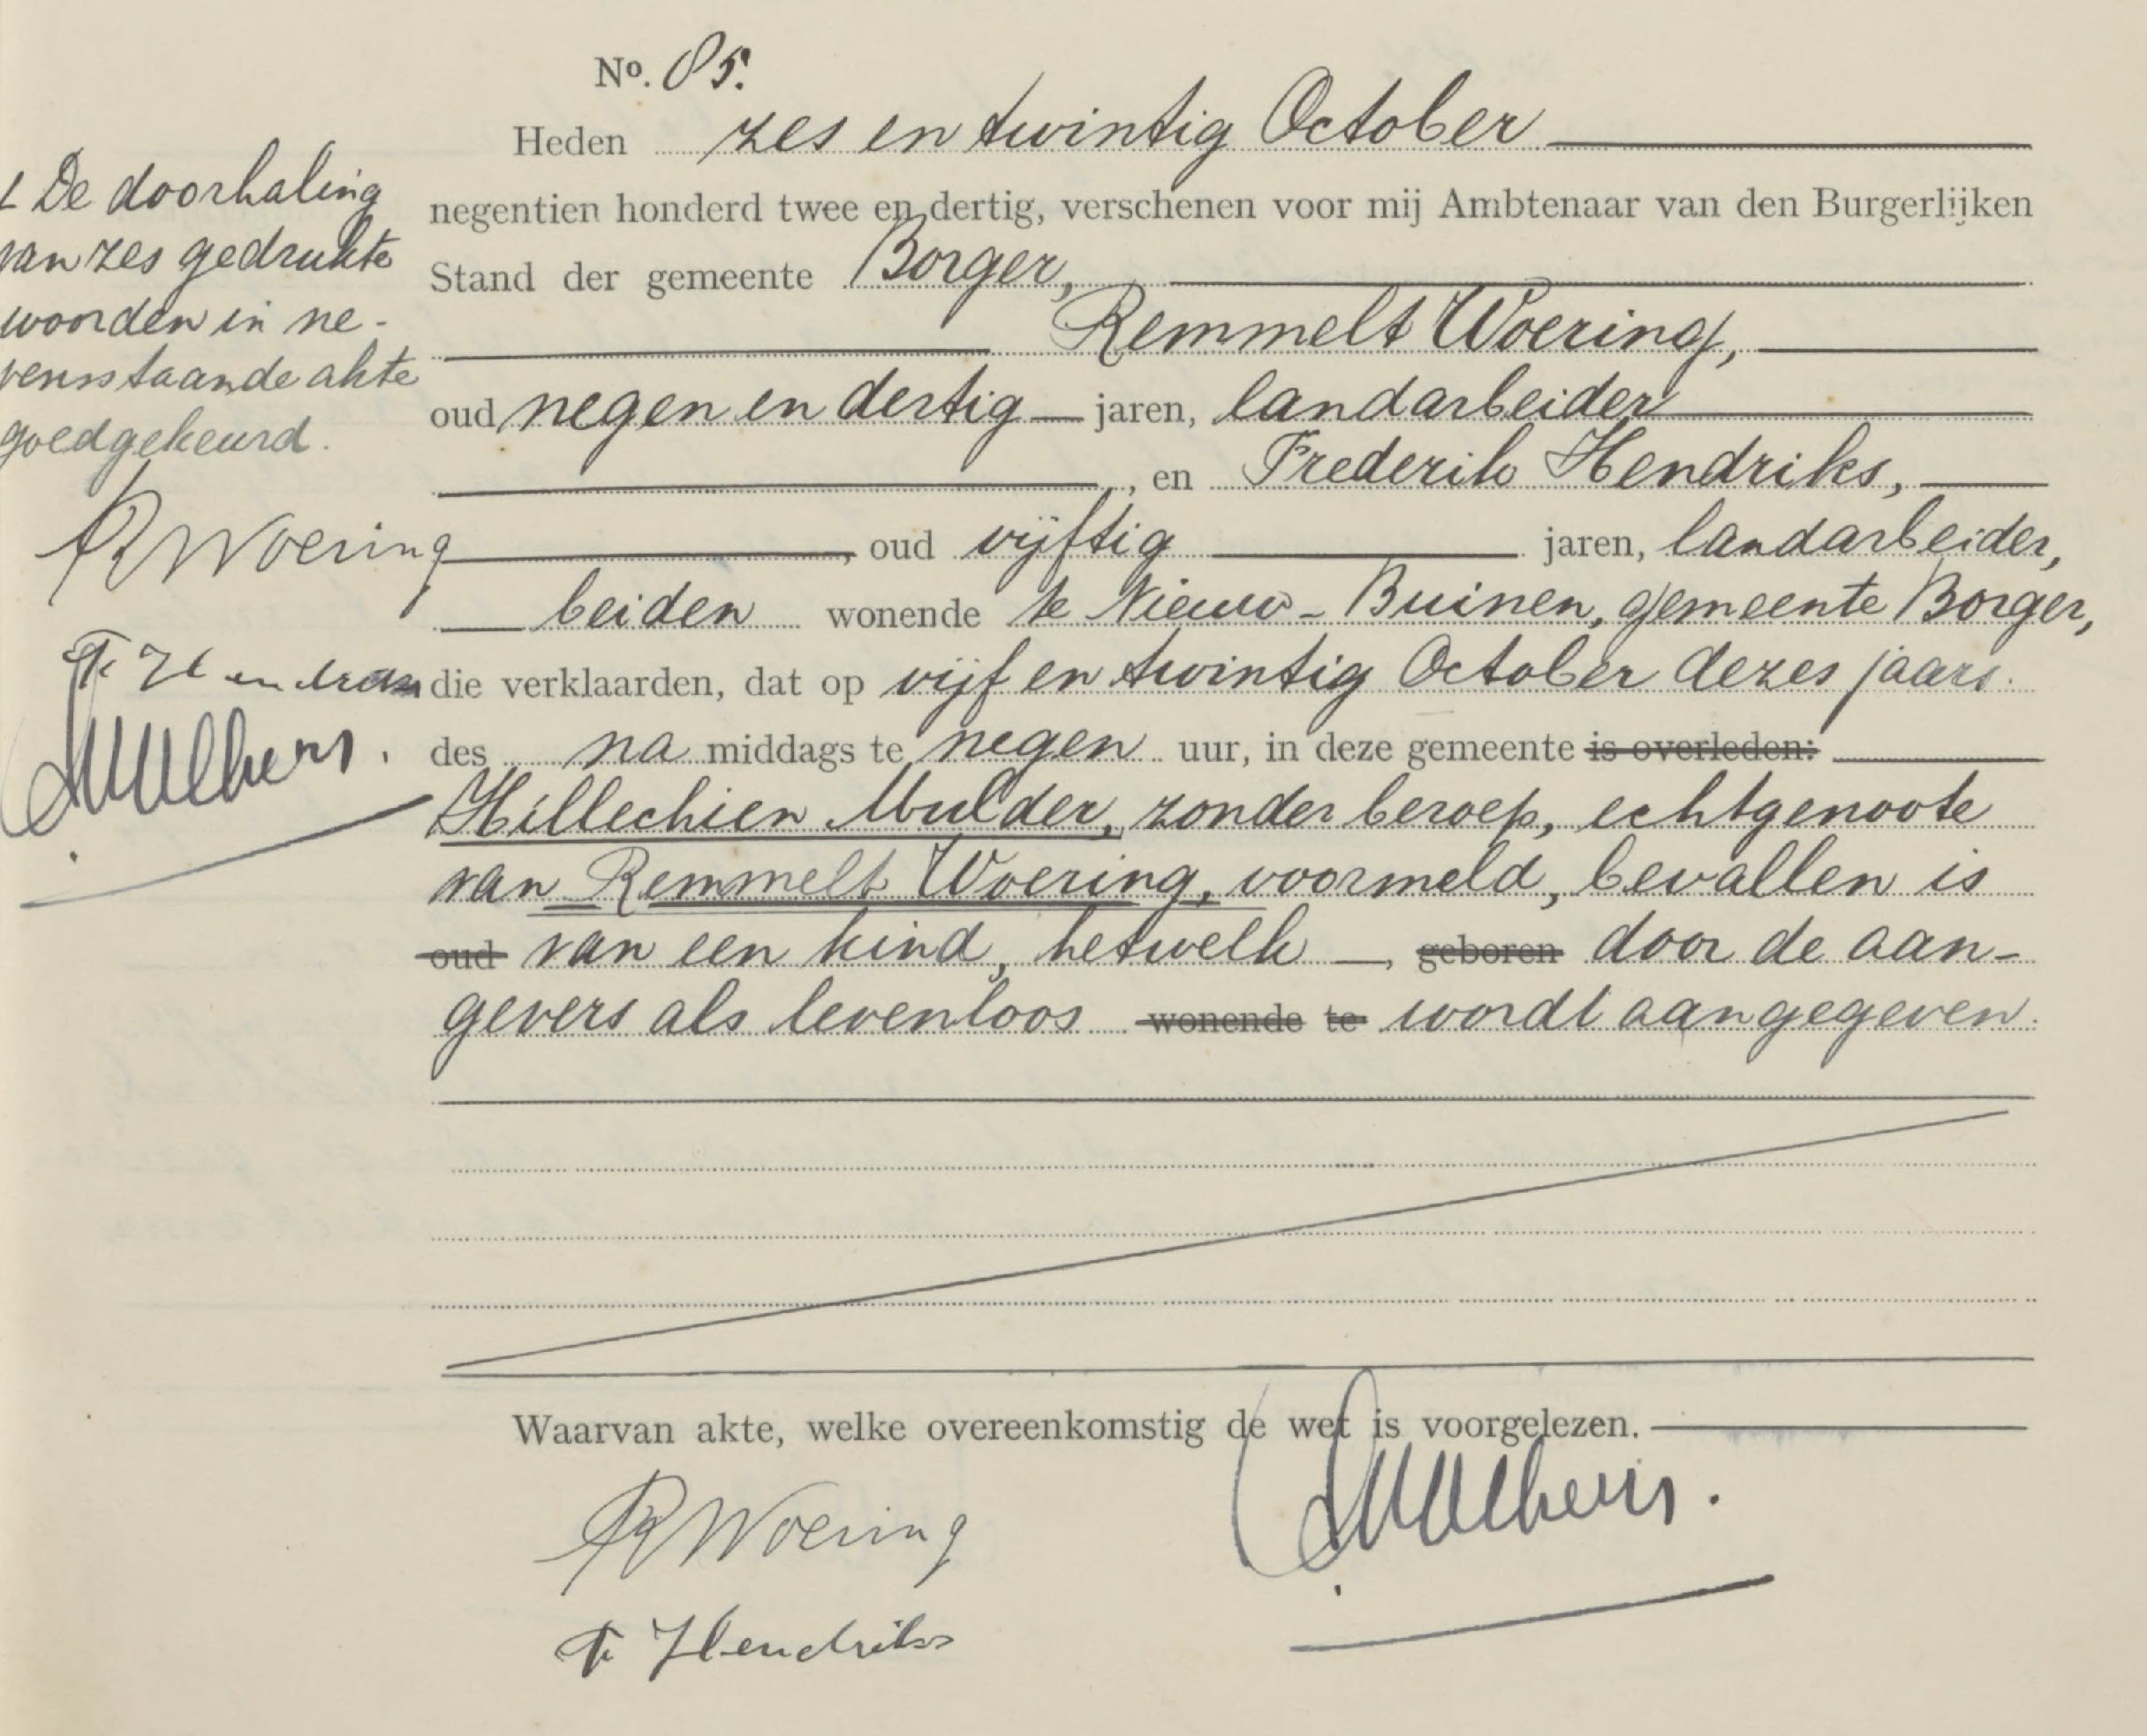 No. 85.
Heden zes en twintig October
negentien honderd twee en dertig, verschenen voor mij Ambtenaar van den Burgerlijken
Stand der gemeente Borger,
Remmelt Woering,
oud negen en dertig jaren, landarbeider
, en Frederik Hendriks,
, oud vijftig jaren, landarbeider,
beiden wonende te Nieuw-Buinen, gemeente Borger,
die verklaarden, dat op vijf en twintig October dezes jaars
des na middags te negen uur, in deze gemeente is overleden:
Hillechien Mulder, zonder beroep, echtgenoote
van Remmelt Woering, voormeld, bevallen is
oud van een kind, hetwelk , geboren door de aan-
gevers als levenloos wonende te wordt aangegeven.
Waarvan akte, welke overeenkomstig de wet is voorgelezen.
R Woering
F Hendriks
De doorhaling
van zes gedrukte
woorden in ne-
vensstaande akte
goedgekeurd.
R Woering
F Hendriks